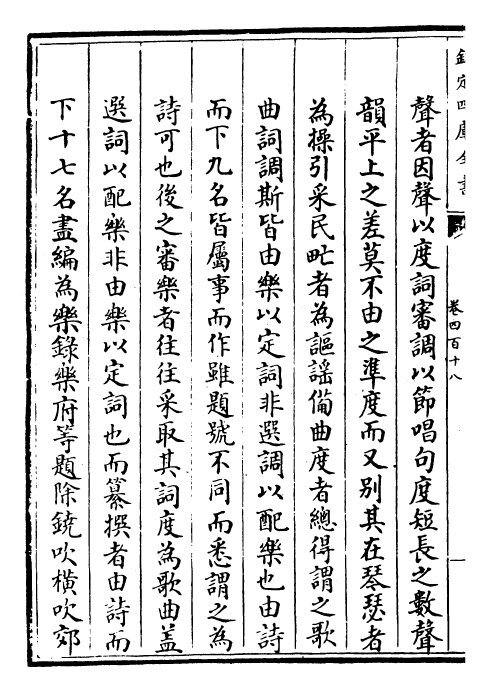 欽定四庫全書
卷四百十八
聲者因聲以度詞審調以節唱句度短長之數聲
韻平上之差莫不由之準度而又别其在琴瑟者
為操引采民甿者為謳謡備曲度者總得謂之歌
曲詞調斯皆由樂以定詞非選調以配樂也由詩
而下九名皆屬事而作雖題號不同而悉謂之為
詩可也後之審樂者往往采取其詞度為歌曲盖
選詞以配樂非由樂以定詞也而纂撰者由詩而
下十七名盡編為樂錄樂府等題除鐃吹横吹郊